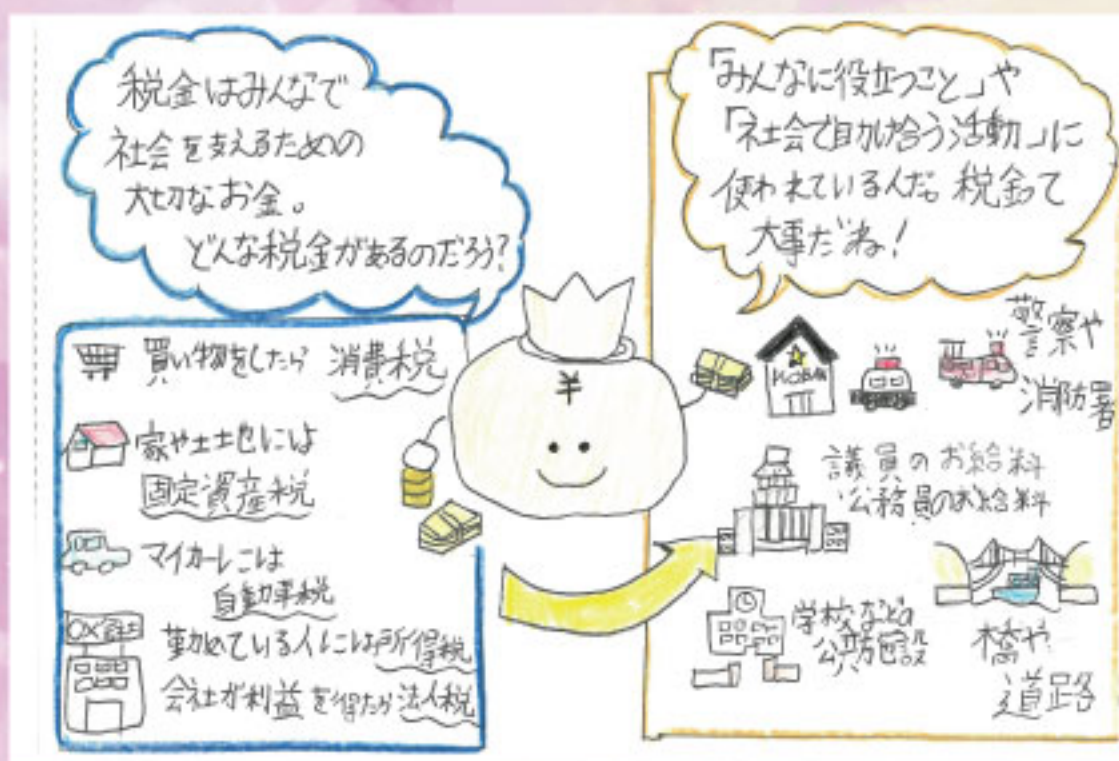 税金はみんなで
社会を支えるための
大切なお金。
どんな税金があるのだろう?
買い物をしたら 消費税
家や土地には
固定資産税
マイカーには
自動車税
○×会社
勤めている人には所得税
会社が利益を得たら法人税
¥
「みんなに役立つこと」や
「社会で助け合う活動」に
使われているんだ。税金って
大事だね!
KOBAN
警察や
消防署
議員のお給料
公務員のお給料
学校などの
公共施設
橋や
道路